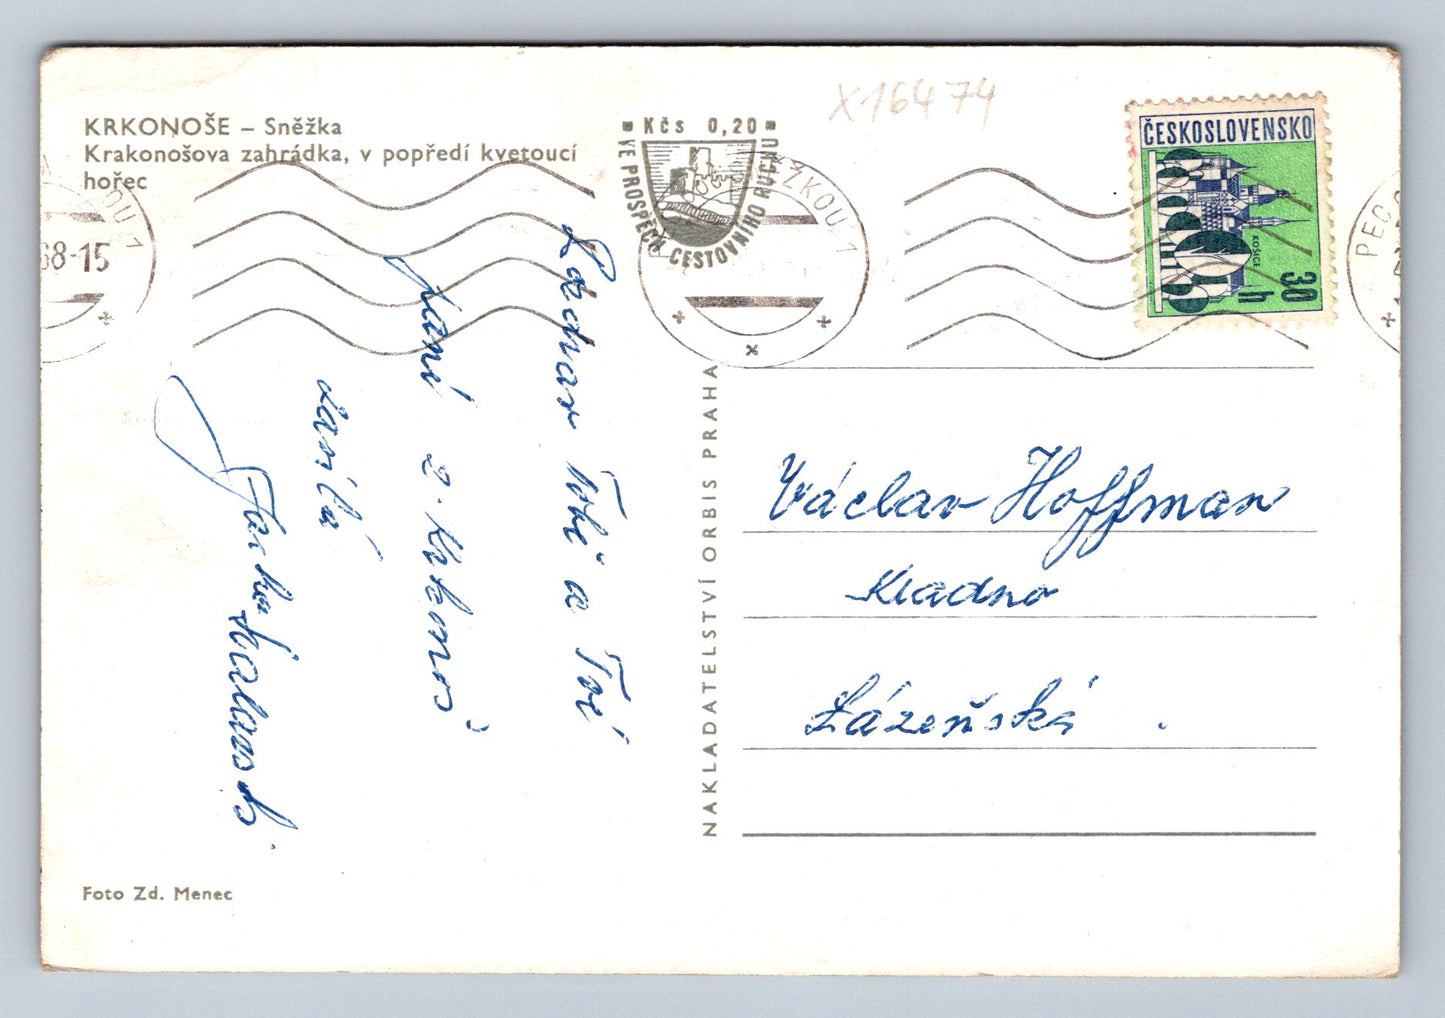 KRKONOŠE – Sněžka
Krakonošova zahrádka, v popředí kvetoucí
hořec
68-15
OU 1
Kčs 0,20
VE PROSPĚCH CESTOVNÍHO RUCHU
ŽKOU 1
X16474
ČESKOSLOVENSKO
KOŠICE
30 h
PEC
Zdraví Tobě a Tvé
paní z Krkonoš
NAKLADATELSTVÍ ORBIS PRAHA
Václav Hoffman
Kladno
Lázeňská
Foto Zd. Menec